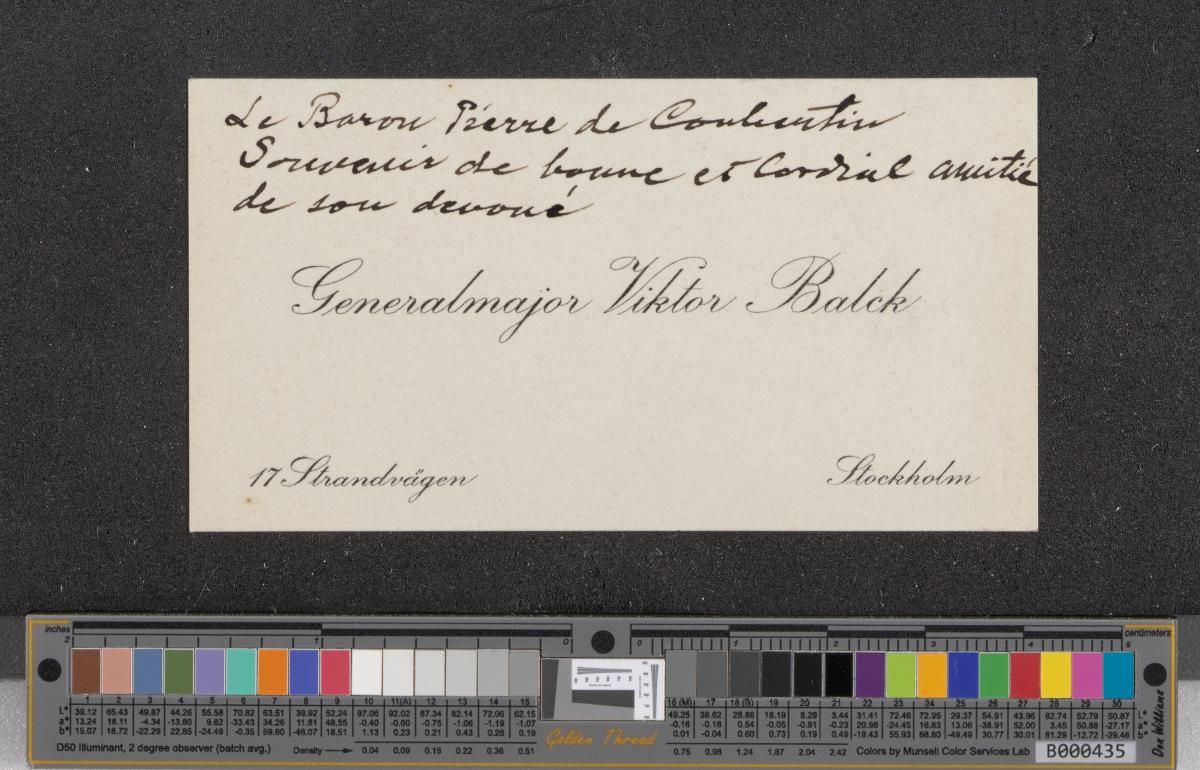 Le Baron Pierre de Coubertin
Souvenir de bonne et Cordial amitié
de son devoué
Generalmajor Viktor Balck
17 Strandvägen
Stockholm
inches
centimeters
2 1 0
0 1 2 3 4 5
1 2 3 4 5 6 7 8 9 10 11(A) 12 13 14 15
16 (M) 17 18 (B) 19 20 21 22 23 24 25 26 27 28 29 30
L* 39.12 65.43 49.87 44.26 55.58 70.82 63.51 39.92 52.24 97.06 92.02 87.34 82.14 72.06 62.15
a* 13.24 18.11 -4.34 -13.80 9.82 -33.43 34.26 11.81 48.55 -0.40 -0.60 -0.75 -1.06 -1.19 -1.07
b* 15.07 18.72 -22.29 22.85 -24.49 -0.35 59.60 -46.07 18.51 1.13 0.23 0.21 0.43 0.28 0.19
49.25 38.62 28.86 18.19 8.29 3.44 31.41 72.46 72.95 29.37 54.91 43.96 82.74 52.79 50.87
-0.16 -0.18 0.54 -0.05 -0.81 -0.23 20.98 -24.45 16.83 13.06 -38.91 52.00 3.45 50.88 -27.17
0.01 -0.04 0.60 0.73 0.19 0.49 -19.43 55.93 68.80 -49.49 30.77 30.01 81.29 -12.72 -29.46
D50 Illuminant, 2 degree observer (batch avg.)
Density 0.04 0.09 0.15 0.22 0.36 0.51
Golden Thread
0.75 0.98 1.24 1.87 2.04 2.42
Colors by Munsell Color Services Lab
B000435
Don Williams